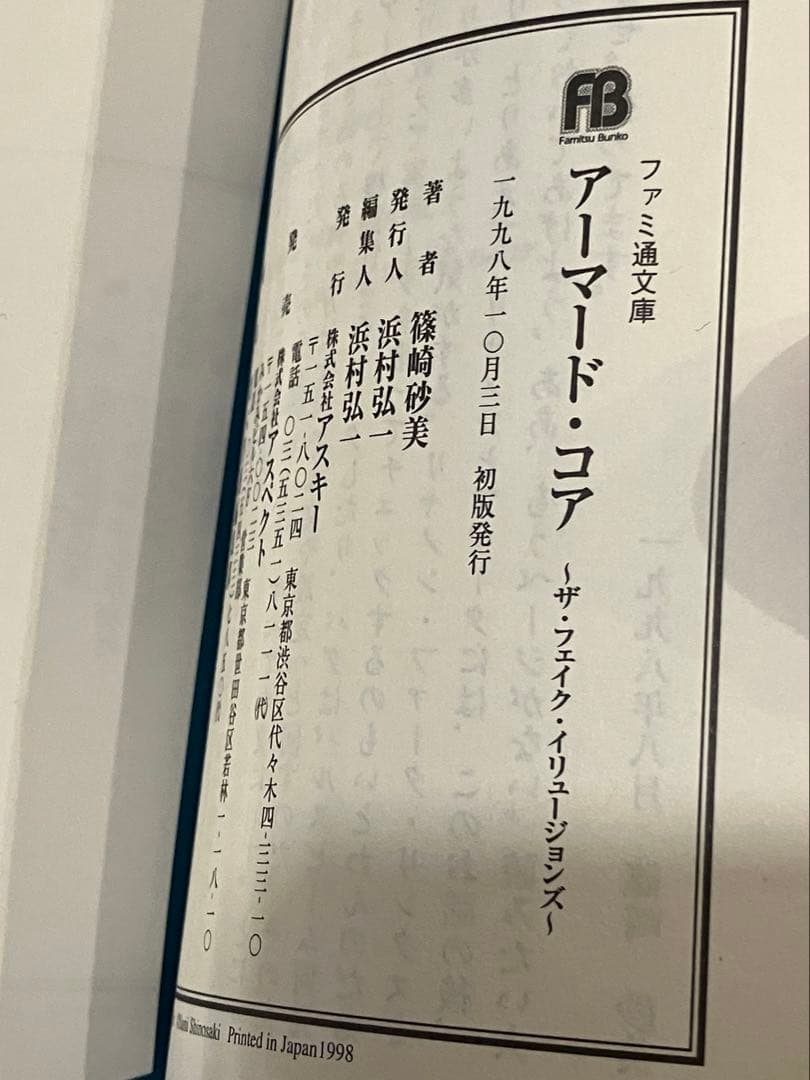 FB
Famitsu Bunko
ファミ通文庫
アーマード・コア
～ザ・フェイク・イリュージョンズ～
一九九八年一〇月三日 初版発行
著者 篠崎砂美
発行人 浜村弘一
編集人 浜村弘一
発行 株式会社アスキー
〒一五一-八〇二四 東京都渋谷区代々木四-三三-一〇
電話 〇三(五三五一)八一一一(代)
発売 株式会社アスペクト
〒一五四-〇〇二三 東京都世田谷区若林一-一八-一〇
Shinosaki Printed in Japan1998